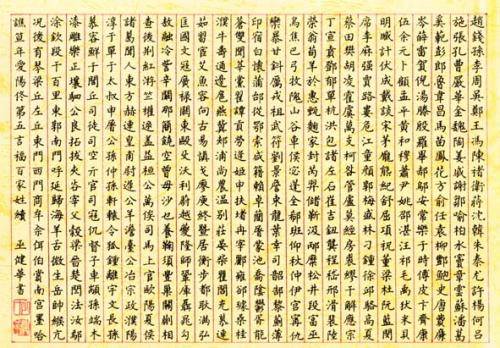 趙錢孫李周吳鄭王馮陳褚衛蔣沈韓朱秦尤許楊何呂
施張孔曹嚴華金魏陶姜戚謝鄒喻柏水竇章雲蘇潘葛
奚范彭郎魯韋昌馬苗鳳花方俞任袁柳酆鮑史唐費廉
岑薛雷賀倪湯滕殷羅畢郝鄔安常樂于時傅皮卞齊康
伍余元卜顧孟平黃和穆蕭尹姚邵湛汪祁毛禹狄米貝
明臧計伏成戴談宋茅龐熊紀舒屈項祝董梁杜阮藍閔
席季麻強賈路婁危江童顏郭梅盛林刁鍾徐邱駱高夏
蔡田樊胡凌霍虞萬支柯昝管盧莫經房裘繆干解應宗
丁宣賁鄧郁單杭洪包諸左石崔吉鈕龔程嵇邢滑裴陸
榮翁荀羊於惠甄麴家封芮羿儲靳汲邴糜松井段富巫
烏焦巴弓牧隗山谷車侯宓蓬全郗班仰秋仲伊宮甯仇
欒暴甘鈄厲戎祖武符劉景詹束龍葉幸司韶郜黎薊薄
印宿白懷蒲邰從鄂索咸籍賴卓藺屠蒙池喬陰鬱胥能
蒼雙聞莘黨翟譚貢勞逄姬申扶堵冉宰酈雍郤璩桑桂
濮牛壽通邊扈燕冀郟浦尚農溫別莊晏柴瞿閻充慕連
茹習宦艾魚容向古易慎戈廖庾終暨居衡步都耿滿弘
匡國文寇廣祿闕東歐殳沃利蔚越夔隆師鞏厙聶晁勾
敖融冷訾辛闞那簡饒空曾毋沙乜養鞠須豐巢關蒯相
查後荊紅游竺權逯蓋益桓公万俟司馬上官歐陽夏侯
諸葛聞人東方赫連皇甫尉遲公羊澹臺公冶宗政濮陽
淳于單于太叔申屠公孫仲孫軒轅令狐鍾離宇文長孫
慕容鮮于閭丘司徒司空亓官司寇仉督子車顓孫端木
漆雕樂正壤駟公良拓拔夾谷宰父穀梁晉楚閆法汝鄢
涂欽段干百里東郭南門呼延歸海羊舌微生岳帥緱亢
況後有琴梁丘左丘東門西門商牟佘佴伯賞南宮墨哈
譙笪年愛陽佟第五言福百家姓續 巫健華書